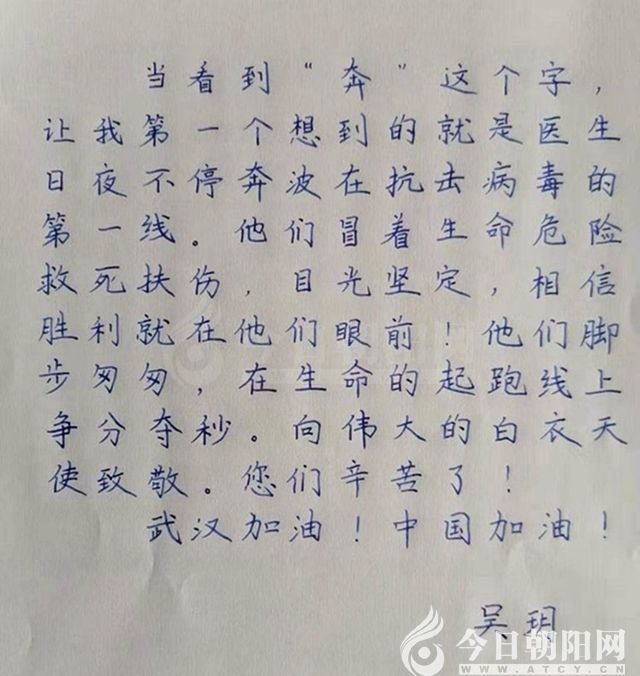 当看到“奔”这个字，
让我第一个想到的就是医生
日夜不停奔波在抗击病毒的
第一线。他们冒着生命危险
救死扶伤，目光坚定，相信
胜利就在他们眼前！他们脚
步匆匆，在生命的起跑线上
争分夺秒。向伟大的白衣天
使致敬。您们辛苦了！
武汉加油！中国加油！
吴玥
今日朝阳网
WWW.ATCY.CN